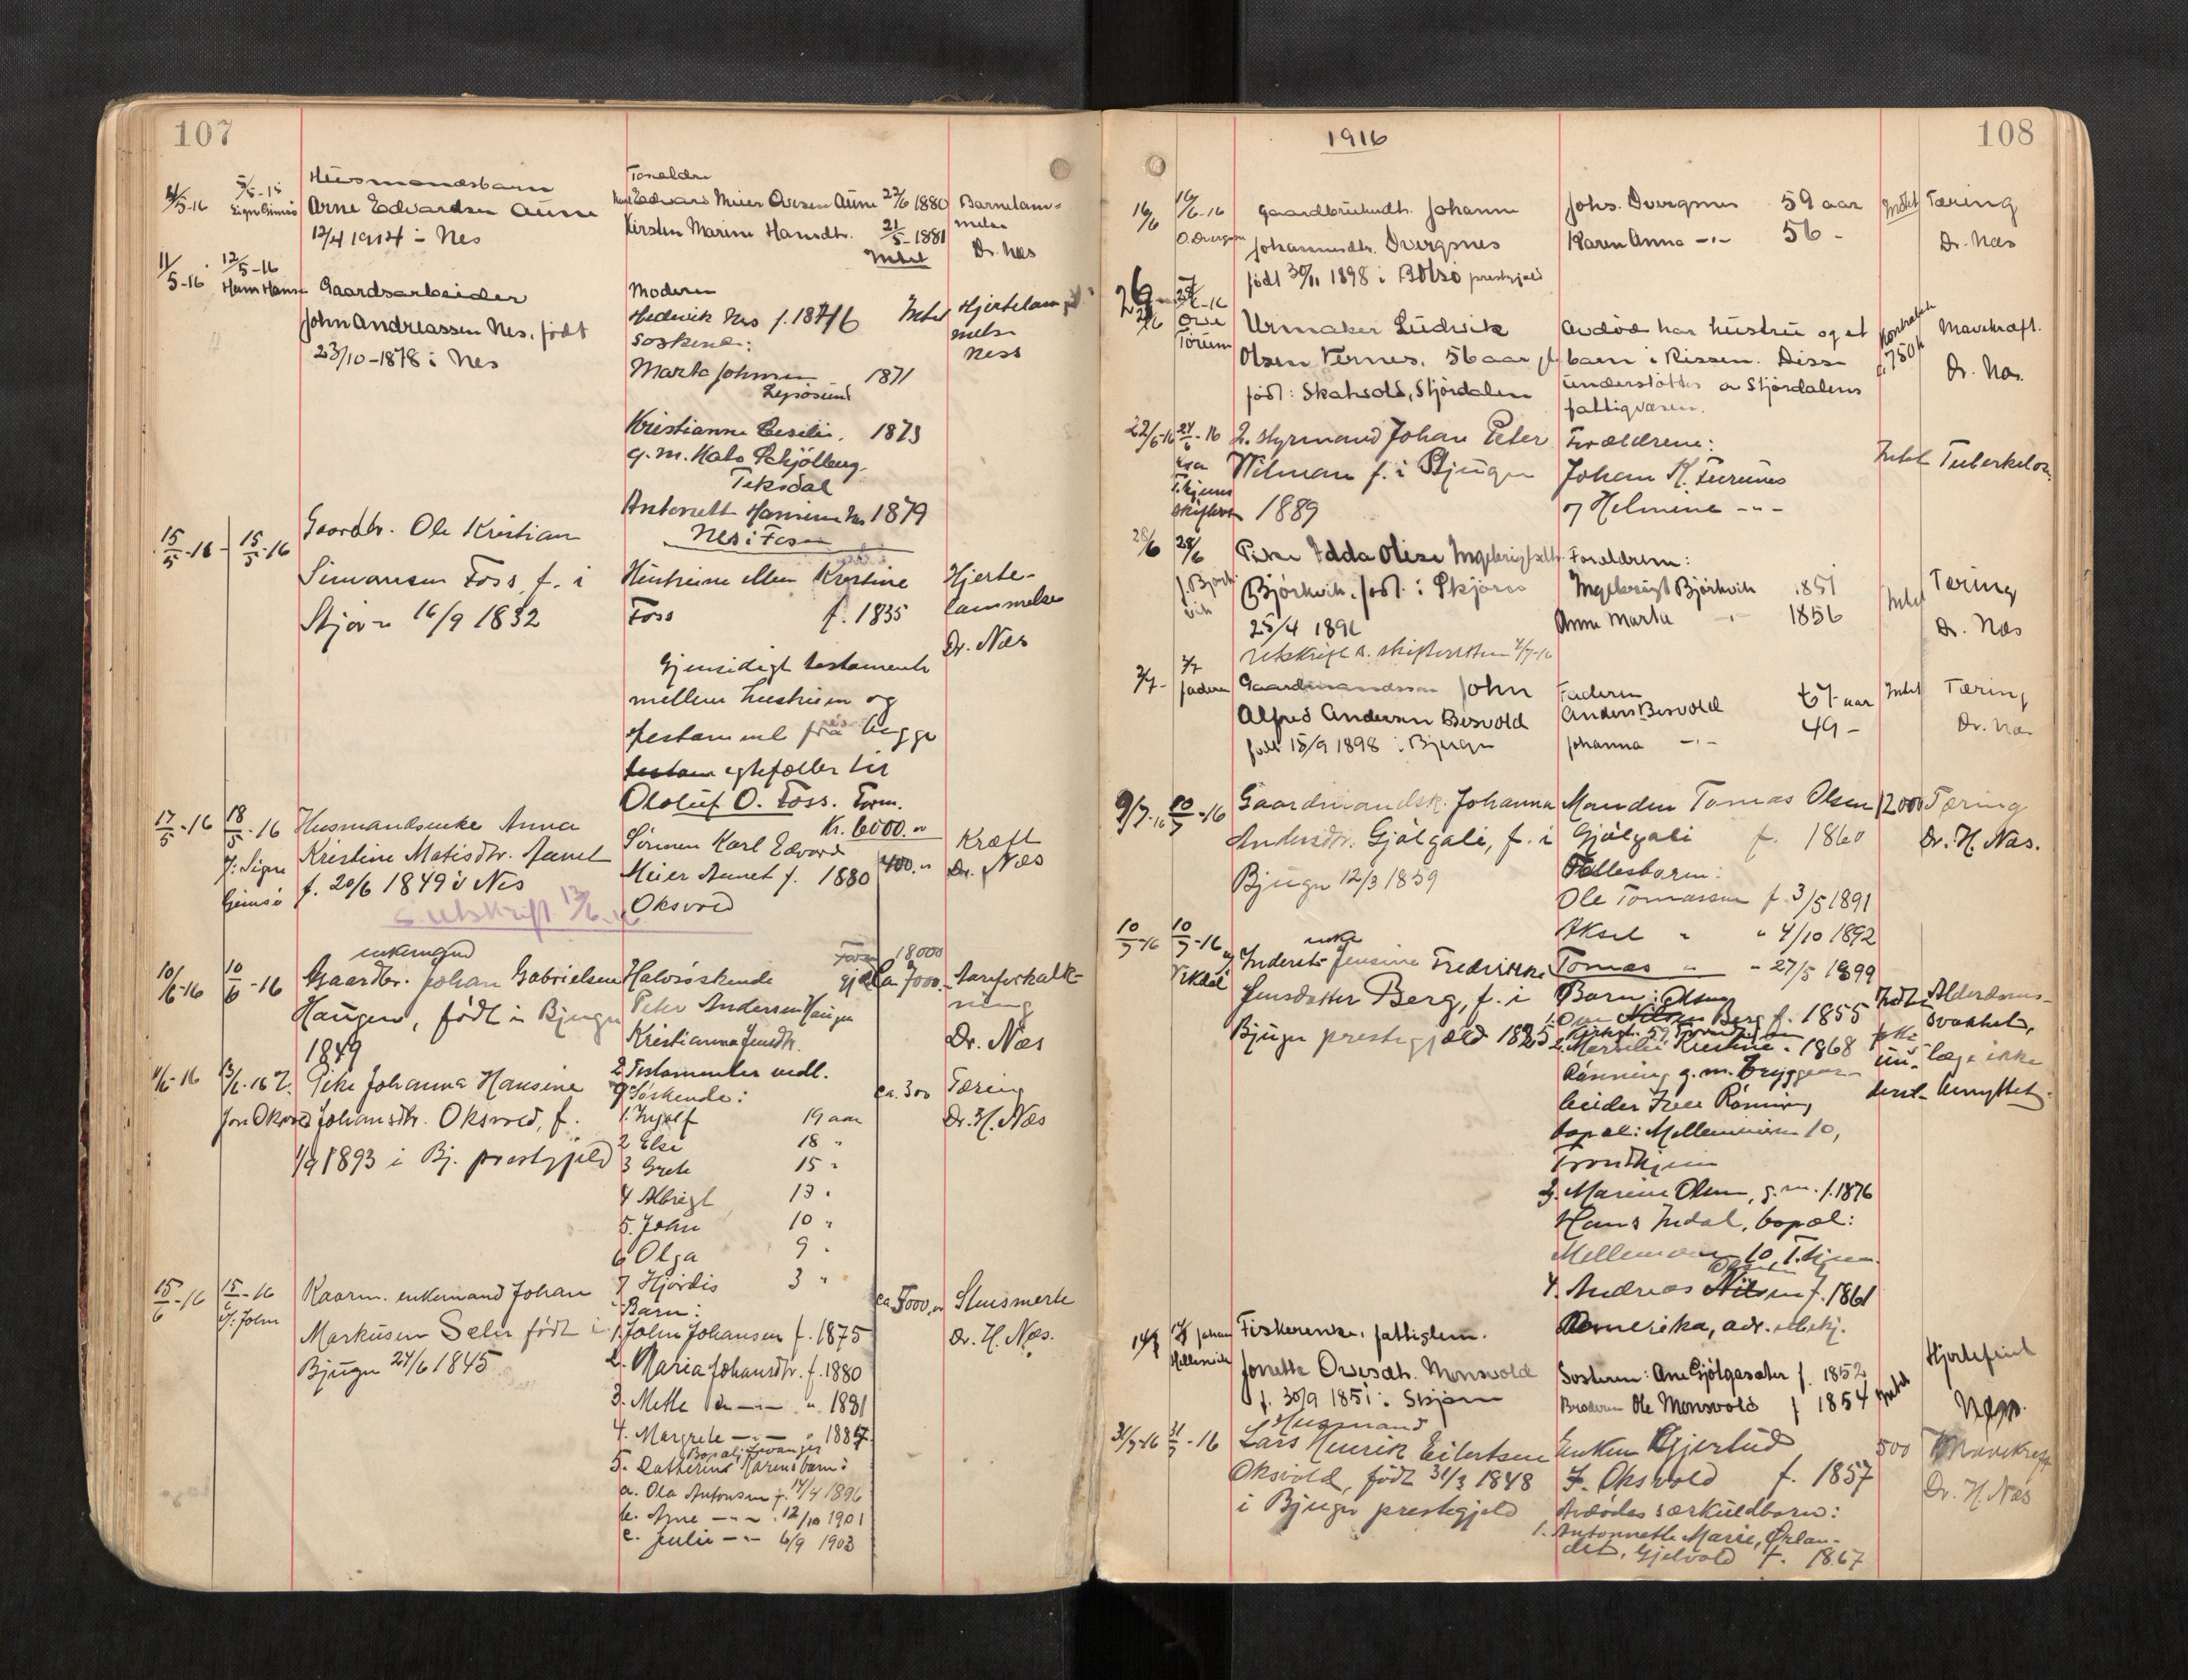 107
Husmandsbarn
Arne Edvardsen Aune
12/4 1914 i Nes
Foreldre
Edvard Meier Ovesen Aune 22/6 1880
Kirsten Marine Hansdtr. 21/5-1881
Intet
Barnelam-
melse
Dr. Næs
11/5-16
12/5-16
Hans Hansen
Gaardsarbeider
John Andreassen Nes, født
23/10-1878 i Nes
Moderen
Hedevik Nes f. 1846
Intet
Hjertelam-
melse
Ness
Søskende:
Marta Johnsen 1871
Lejøsund
Kristianne Cesilie, 1873
g.m. Mats Schjølberg
Teksdal
Antonette Hansen Nes 1879
Nes i Fosen
15/5-16
15/5-16
Gaardbr. Ole Kristian
Simonsen Foss f. i
Stjørn 16/9 1832
Hustruen Ellen Kristine
Foss f. 1835
Hjerte-
lammelse
Dr. Næs
Gjensidigt testamente
mellem hustruen og
testament fra begge
egtefæller til
Ololuf O. Foss. Form.
Kr. 6000.00
17/5-16
18/5-16
Husmandsenke Anna
Kristine Matisdtr. Aunet
f. 20/6 1849 i Nes
Sønnen Karl Edvard
Meier Aunet f. 1880
Oksvold
400.00
Kræft
Dr. Næs
Utskrift 13/6-16
10/6-16
10/6-16
enkemand
Gaardbr. Johan Gabrielsen
Haugen, født i Bjugn
1849
Halvsøskende
Peter Andersen Haugen
Kristianna Jensdtr.
2 Testamenter vedl.
18000
7000
Aareforkalk-
ning
Dr. Næs
11/6-16
13/6-16
Jon Oksvold
Pike Johanna Hansine
Johansdtr. Oksvold, f.
1/9 1893 i Bj. prestegjeld
Søskende:
1. Ingolf 19 aar
2 Else 18 "
3 Grete 15 "
4 Albrigt 13 "
5. John 10 "
6 Olga 9 "
7 Hjørdis 3 "
ca. 300
Tæring
Dr. H. Næs
15/6-16
15/6-16
Kaarm. enkemand Johan
Markusen Selnes født i
Bjugn 24/6 1845
Barn:
1. John Johansen f. 1875
2. Maria Johansdtr. f. 1880
3. Mette 1881
4. Margrete 1887
5. Katherine Karens barn:
a. Ola Antonsen f. 14/4 1896
b. Arne 12/10 1901
c. Julie 6/9 1903
ca. 5000.00
Slusmerte
Dr. H. Næs.
108
1916
16/6
16/6-16
O. Dvergsnes
Gaardbrukerdt. Johanne
Johannesdtr. Dvergsnes
født 30/11 1898 i Bolsø prestegjeld
Johs. Dvergsnes 59 aar
Karen Anna 56 -
Intet
Tæring
Dr. Næs
Urmaker Ludvik
Olsen Fernes, 56 aar
født: Skatvold, Stjørdalen
Avdøde har hustru og et
barn i Rissen. Disse
understøttes av Stjørdalens
fattigvæsen.
Mavekræft.
Dr. Næs.
22/6-16
24/6-16
2. styrmand Johan Peter
Wilman f. i Bjugn
1889
Forældrene:
Johan K. Furunes
og Helmine
Intet
Tuberkulose
28/6
28/6
J. Bjørkvik
Pike Edda Olise Ingebrigtsdtr.
Bjørkvik, født i Skjørn
25/4 1891
Utskrift s. skifteretten 4/7-16
Foreldrene:
Ingebrigt Bjørkvik 1851
Anne Marta 1856
Intet
Tæring
Dr. Næs
2/7-
3/7
faderen
Gaardmandssøn John
Alfred Andersen Besvold
født 15/9 1898 i Bjugn
Faderen
Anders Besvold 67 aar
Johanna 49 -
Intet
Tæring
Dr. Næs
9/7-16
10/7-16
Gaardmandsk. Johanna
Andersdtr. Gjølgali, f. i
Bjugn 12/3 1859
Manden Tomas Olsen
Gjølgali f. 1860
Fællesbarn:
Ole Tomassen f. 3/5 1891
Aksel " " 4/10 1892
Tomas " " 27/5 1899
12000
Tæring
Dr. H. Næs.
10/7-16
10/7-16
Vikdal
enke
Inderst Jensine Fredrikke
Jensdatter Berg, f. i
Bjugn prestegjæld 1825
Barn: Olsen
Berg f. 1855
2. Merselie Kristine - 1868
Rønning g.m. bryggear-
beider Rønning
bopæl: Mellemveien 10,
Trondhjem
3. Marine Olsen, g.m. f. 1876
Hans Indal, bopæl:
Mellemveien 10, T.hjem
4. Andreas f. 1861
Amerika, adr. ubekj.
Alderdoms-
svakhet,
læge ikke
benyttet.
Fiskerenke, fattiglem.
Jonetta Ovesdtr. Monsvold
f. 30/9 1851 i Skjørn
Søsteren: Ane Gjølgasæter f. 1852
Broderen Ole Monsvold f 1854
Intet
Hjertefeil
Næss.
31/7-16
31/7-16
Husmand
Lars Henrik Eilertsen
Oksvold, født 31/3 1848
i Bjugn prestegjeld
Enken Gjertrud
J. Oksvold f. 1857
Avdødes særkuldbarn:
1. Antonnette Marie, Ørlan-
det, Gjelvold f. 1867
500
Mavekræft
Dr. H. Næs